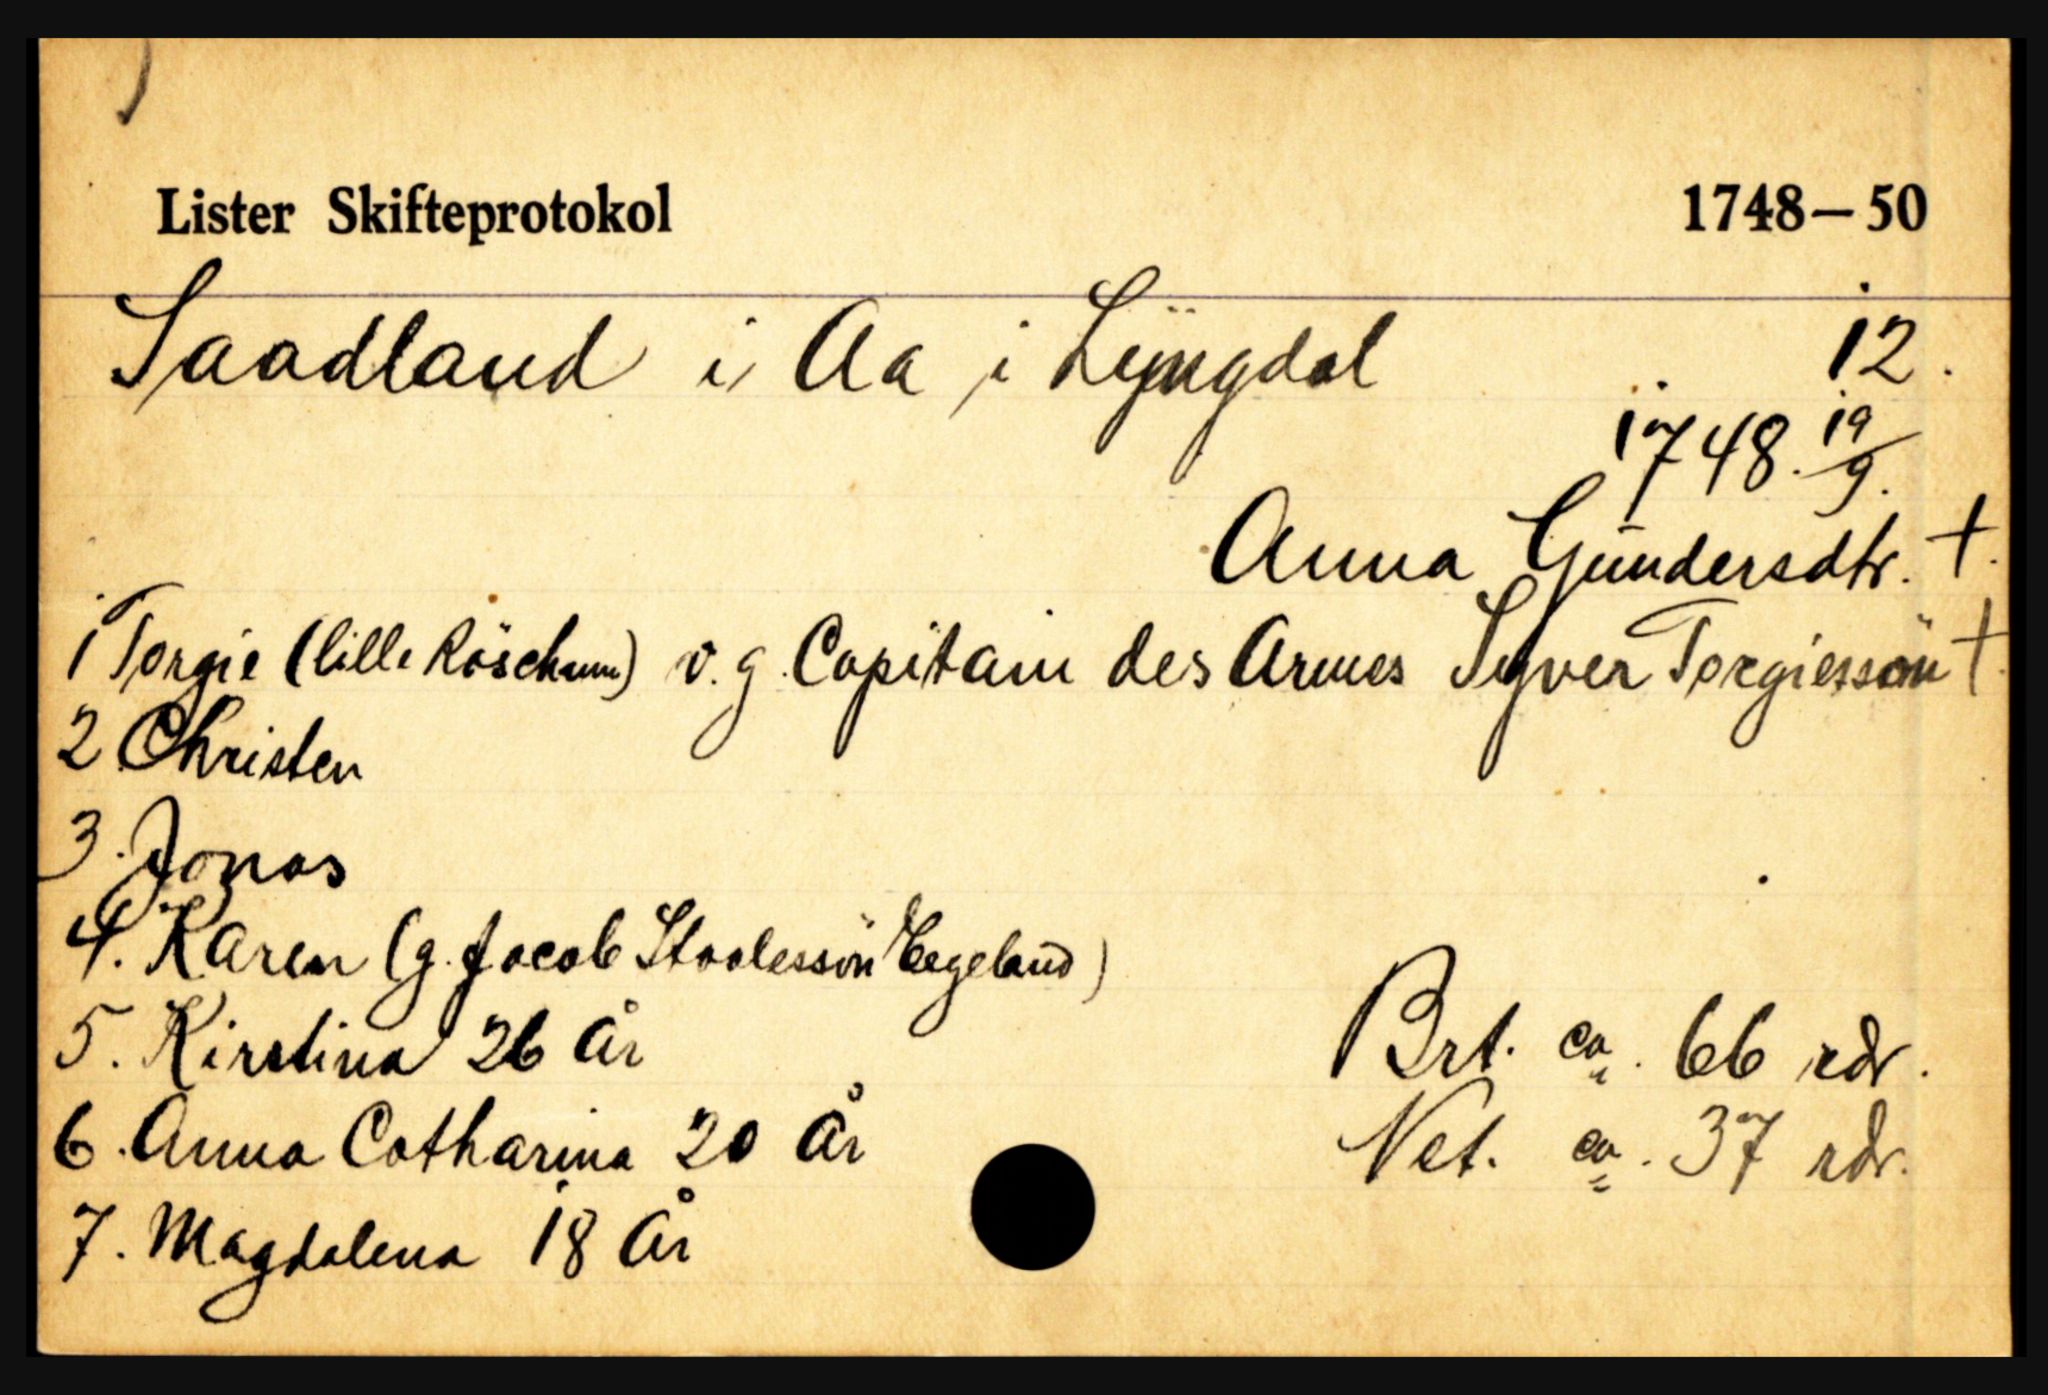 Lister Skifteprotokol 1748–50
Saadland i Aa i Lÿngdal 12.
1748. 19/9.
Anna Gūndersdtr. †.
1 Torgie (lille Röscham) v. g. Capitain des Armes Syver Torgiessön †.
2 Christen
3. Jonas
4. Karen (g. Jacob Staalessön Eegeland)
5. Kirstina 26 År
6. Anna Catharina 20 År
7. Magdalena 18 År
Brt. ca. 66 rdr.
Net. ca. 37 rdr.